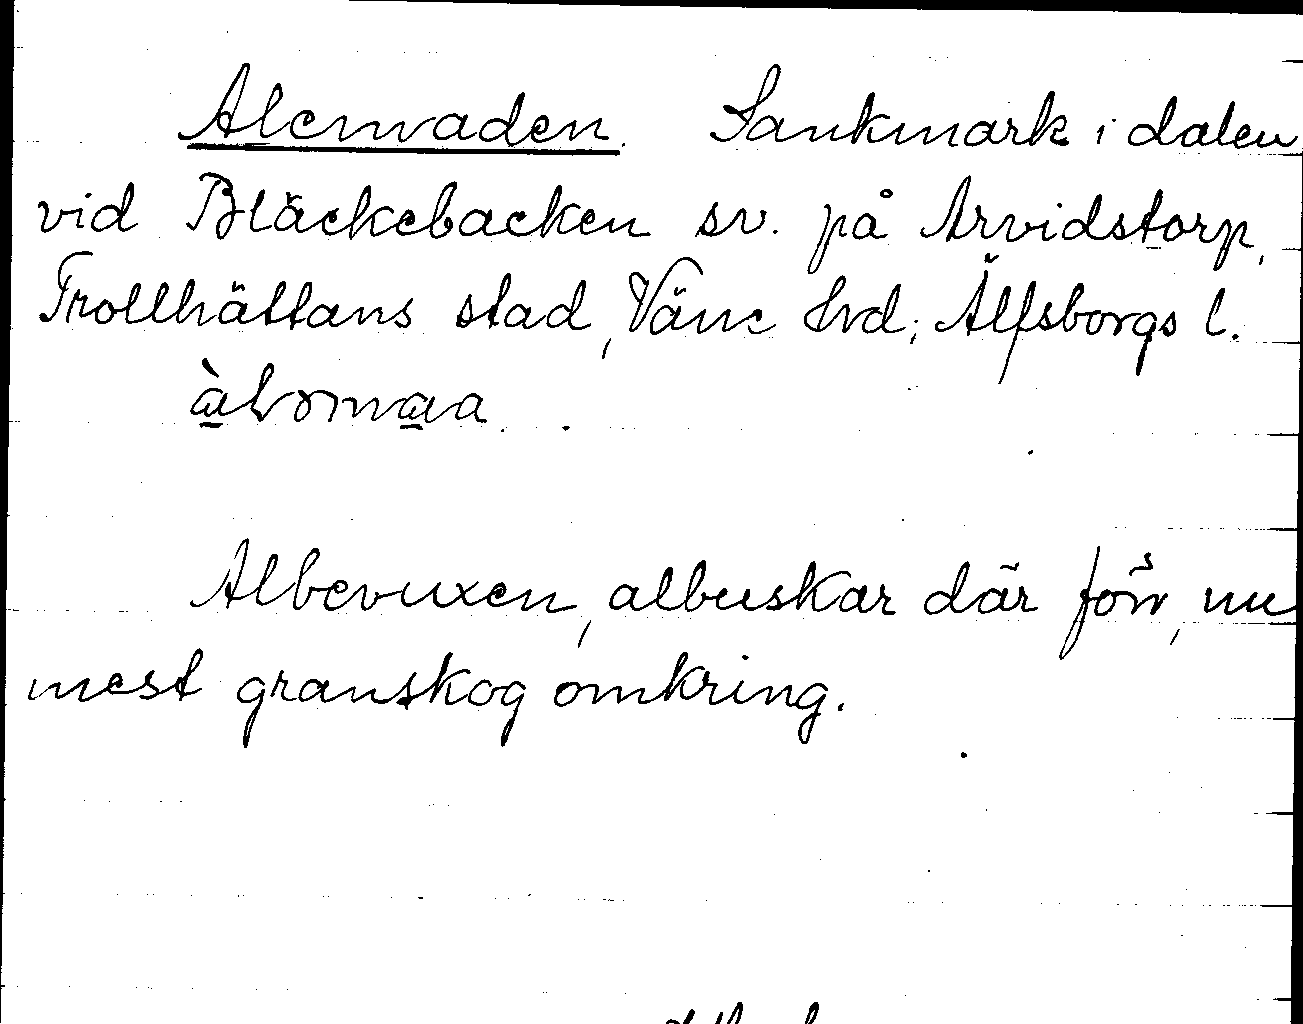 Alemaden. Sankmark i dalen
vid Bläckebacken sv. på Arvidstorp,
Trollhättans stad, Väne hrd, Älfsborgs l.
Albevuxen, albuskar där förr, nu
mest granskog omkring.